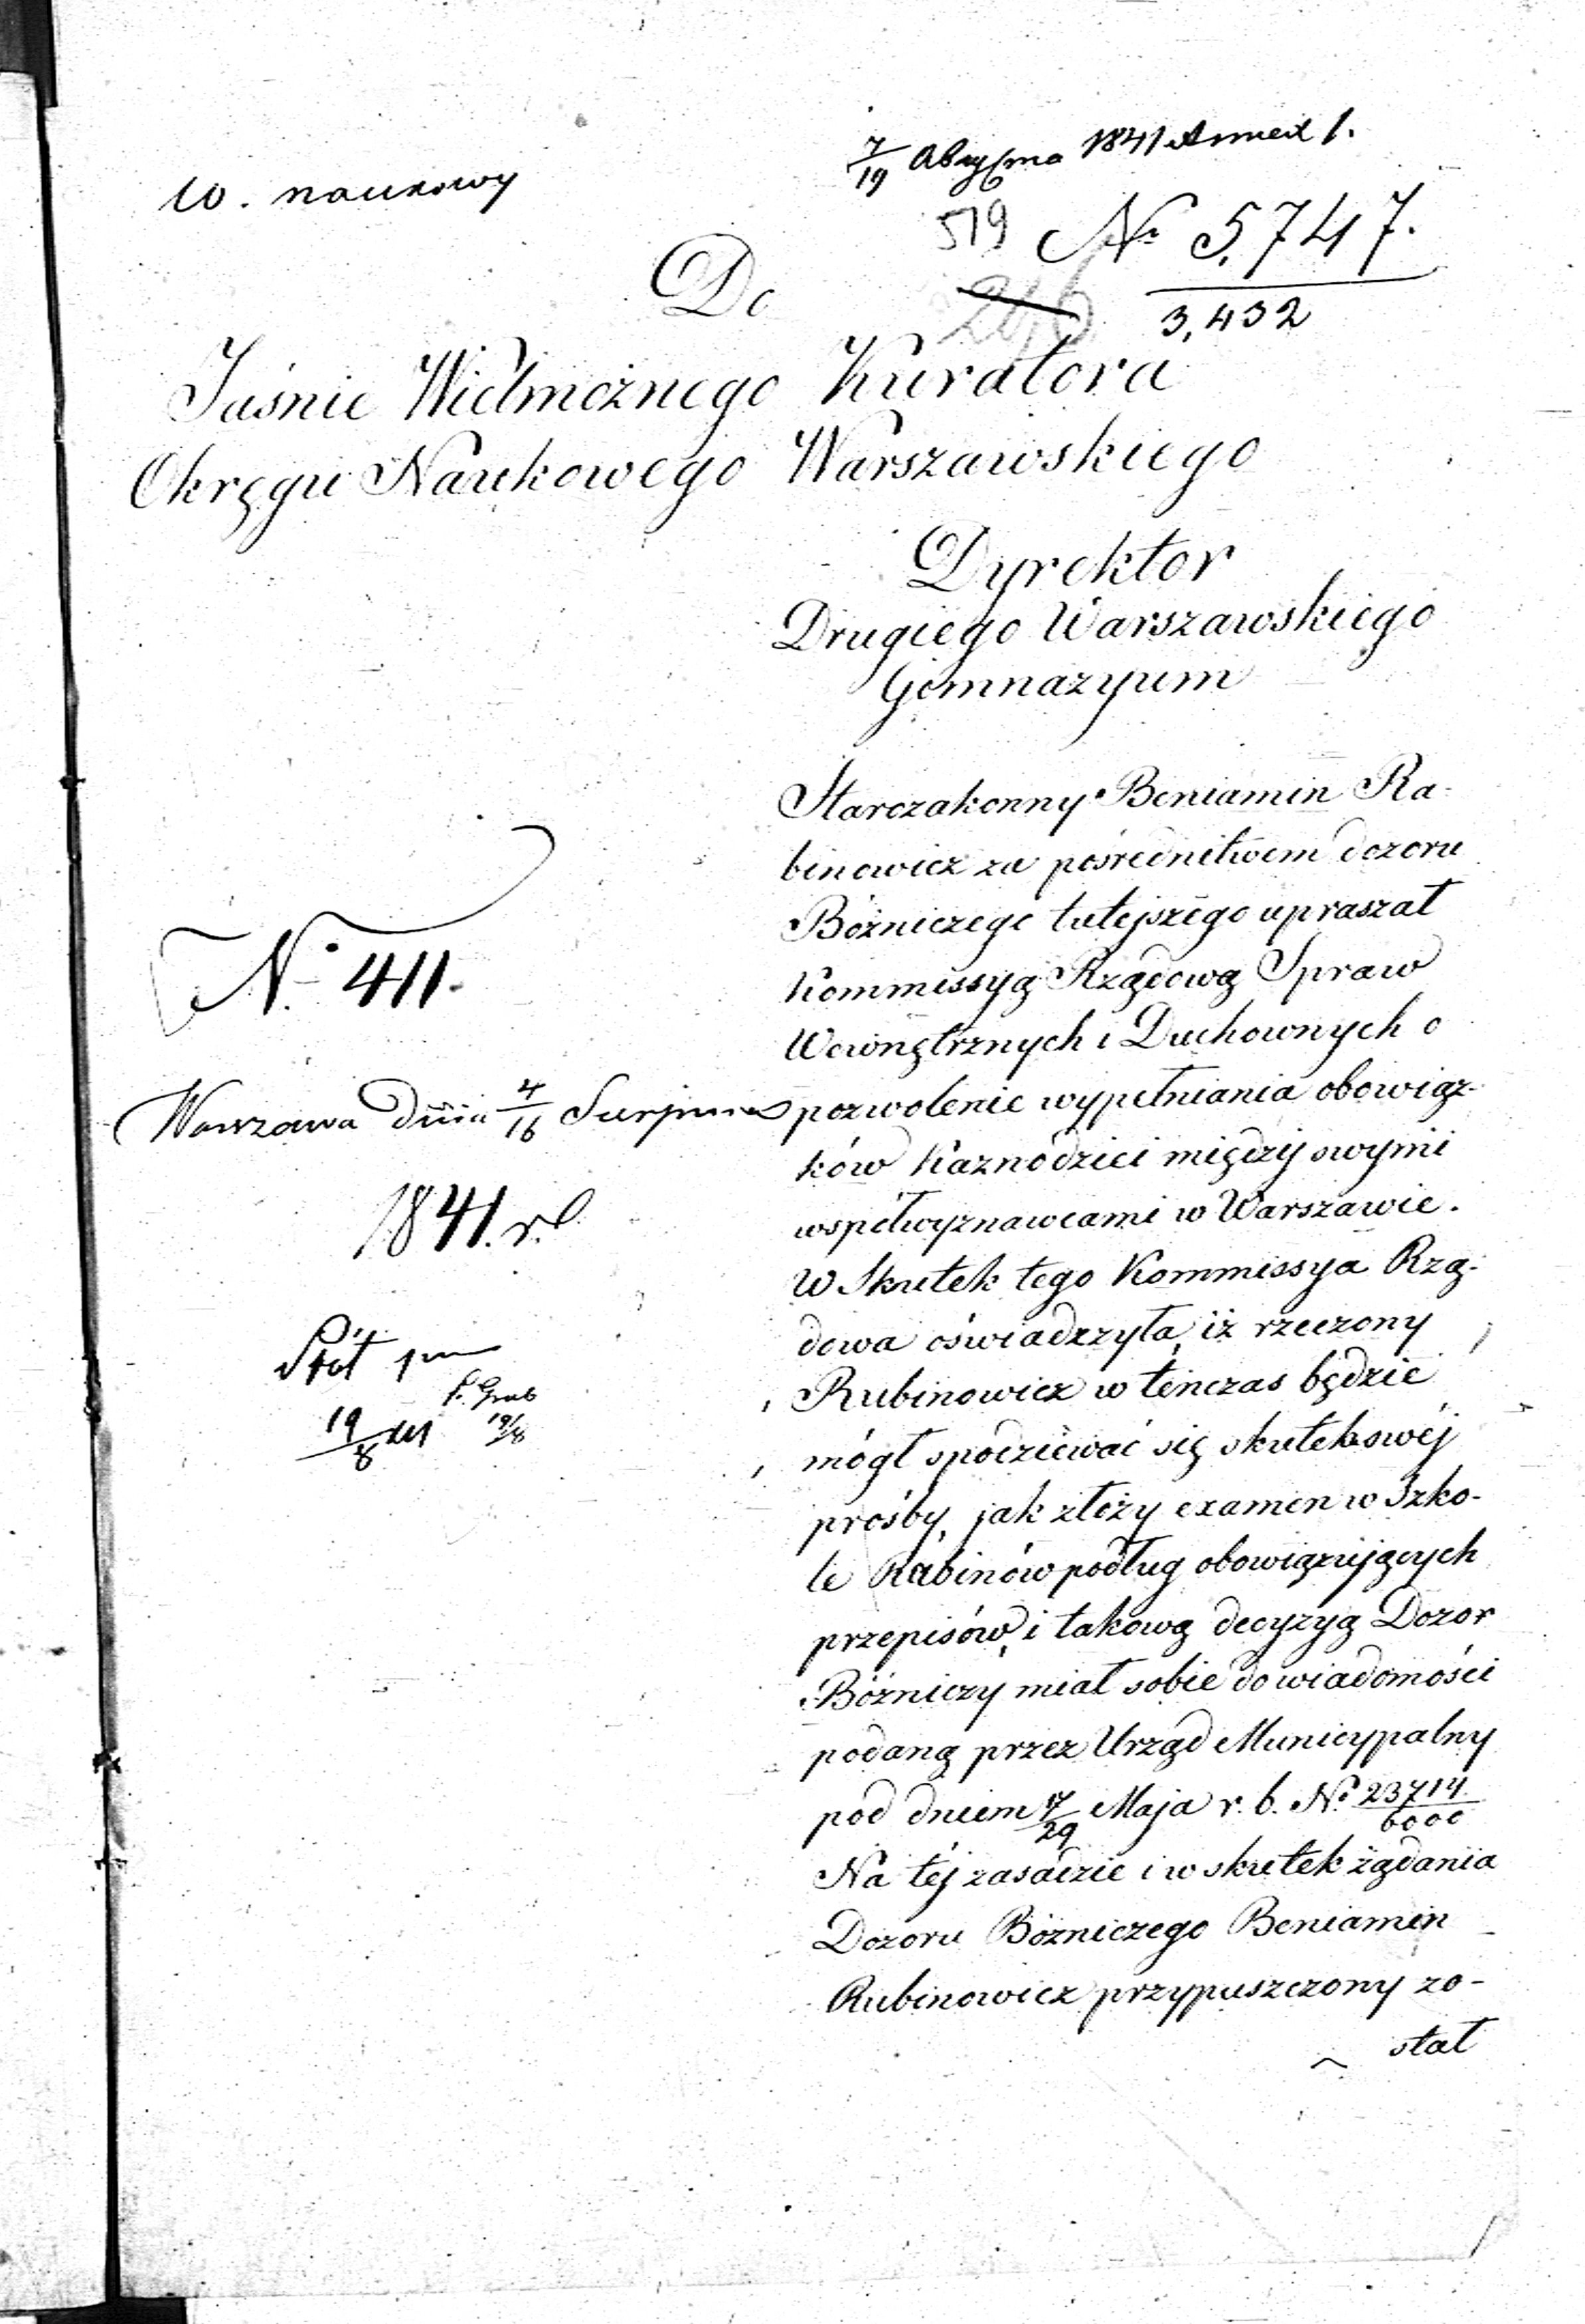 7/19 Августа 1841 Annex 1.
W. naukowy
519 № 5,747.
3,432
Do
Jaśnie Wielmożnego Kuratora
Okręgu Naukowego Warszawskiego
Dyrektor
Drugiego Warszawskiego
Gimnazyum
Starozakonny Beniamin Ra-
binowicz za pośrednitwem dozoru
Bóżniczego tutejszego upraszał
N. 411.
Kommissyą Rządową Spraw
Wewnętrznych i Duchownych o
Warszawa dnia 4/16 Sierpnia
pozwolenie wypełniania obowiąz-
ków Kaznodziei między swymi
1841. r.
współwyznawcami w Warszawie.
W Skutek tego Kommissya Rzą-
dowa oświadczyła, iż rzeczony
Rubinowicz w tenczas będzie
19/8
19/8
mógł spodziewać się skutku swéj
prośby, jak złoży examen w Szko-
le Rabinów podług obowiązujących
przepisów, i takową decyzyą Dozor
Bóżniczy miał sobie do wiadomości
podaną przez Urząd Municypalny
pod dniem 17/29 Maja r. b. No 23714/6000
Na téj zasadzie i w skutek żądania
Dozoru Bóżniczego Beniamin
Rubinowicz przypuszczony zo-
stał